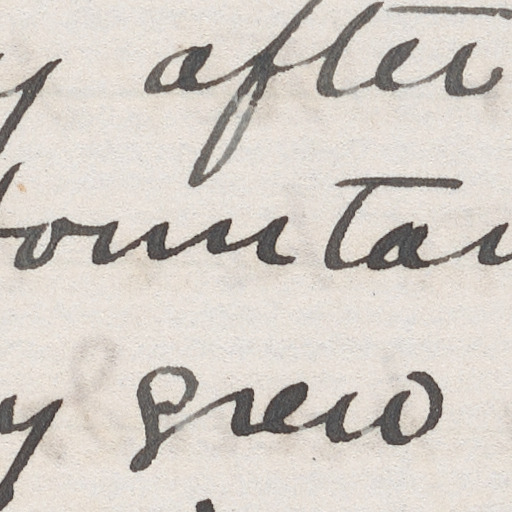 y after
ountai
y grew